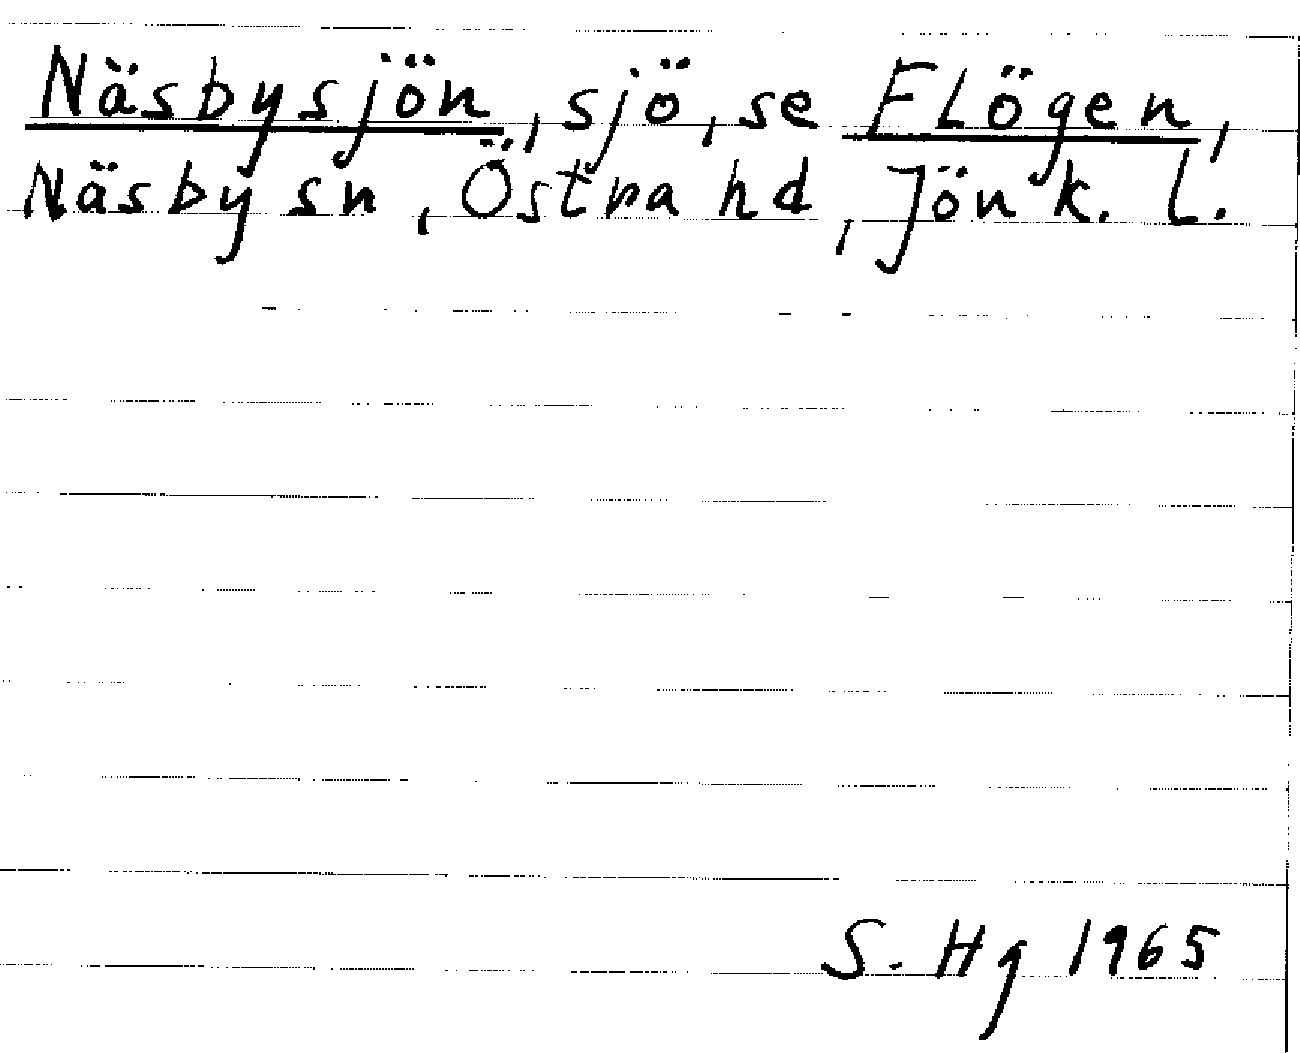 Näsbysjön, sjö, se Flögen,
Näsby sn, Östra hd, Jönk. l.
S. Hg 1965